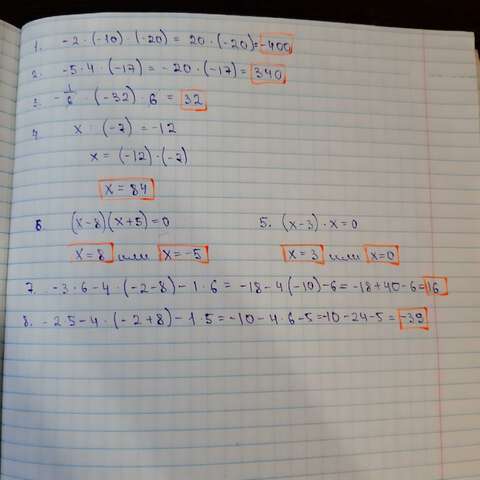 1. -2 · (-10) · (-20) = 20 · (-20) = -400
2. -5 · 4 · (-17) = -20 · (-17) = 340
3. -1/6 · (-32) · 6 = 32
4. x : (-7) = -12
x = (-12) · (-7)
x = 84
6 (x-8)(x+5)=0 5. (x-3) · x = 0
x=8 или x=-5 x=3 или x=0
7. -3 · 6 - 4 · (-2-8) - 1 · 6 = -18 - 4(-10) - 6 = -18 + 40 - 6 = 16
8. -2 5 - 4 · (-2+8) - 1 · 5 = -10 - 4 · 6 - 5 = -10 - 24 - 5 = -39